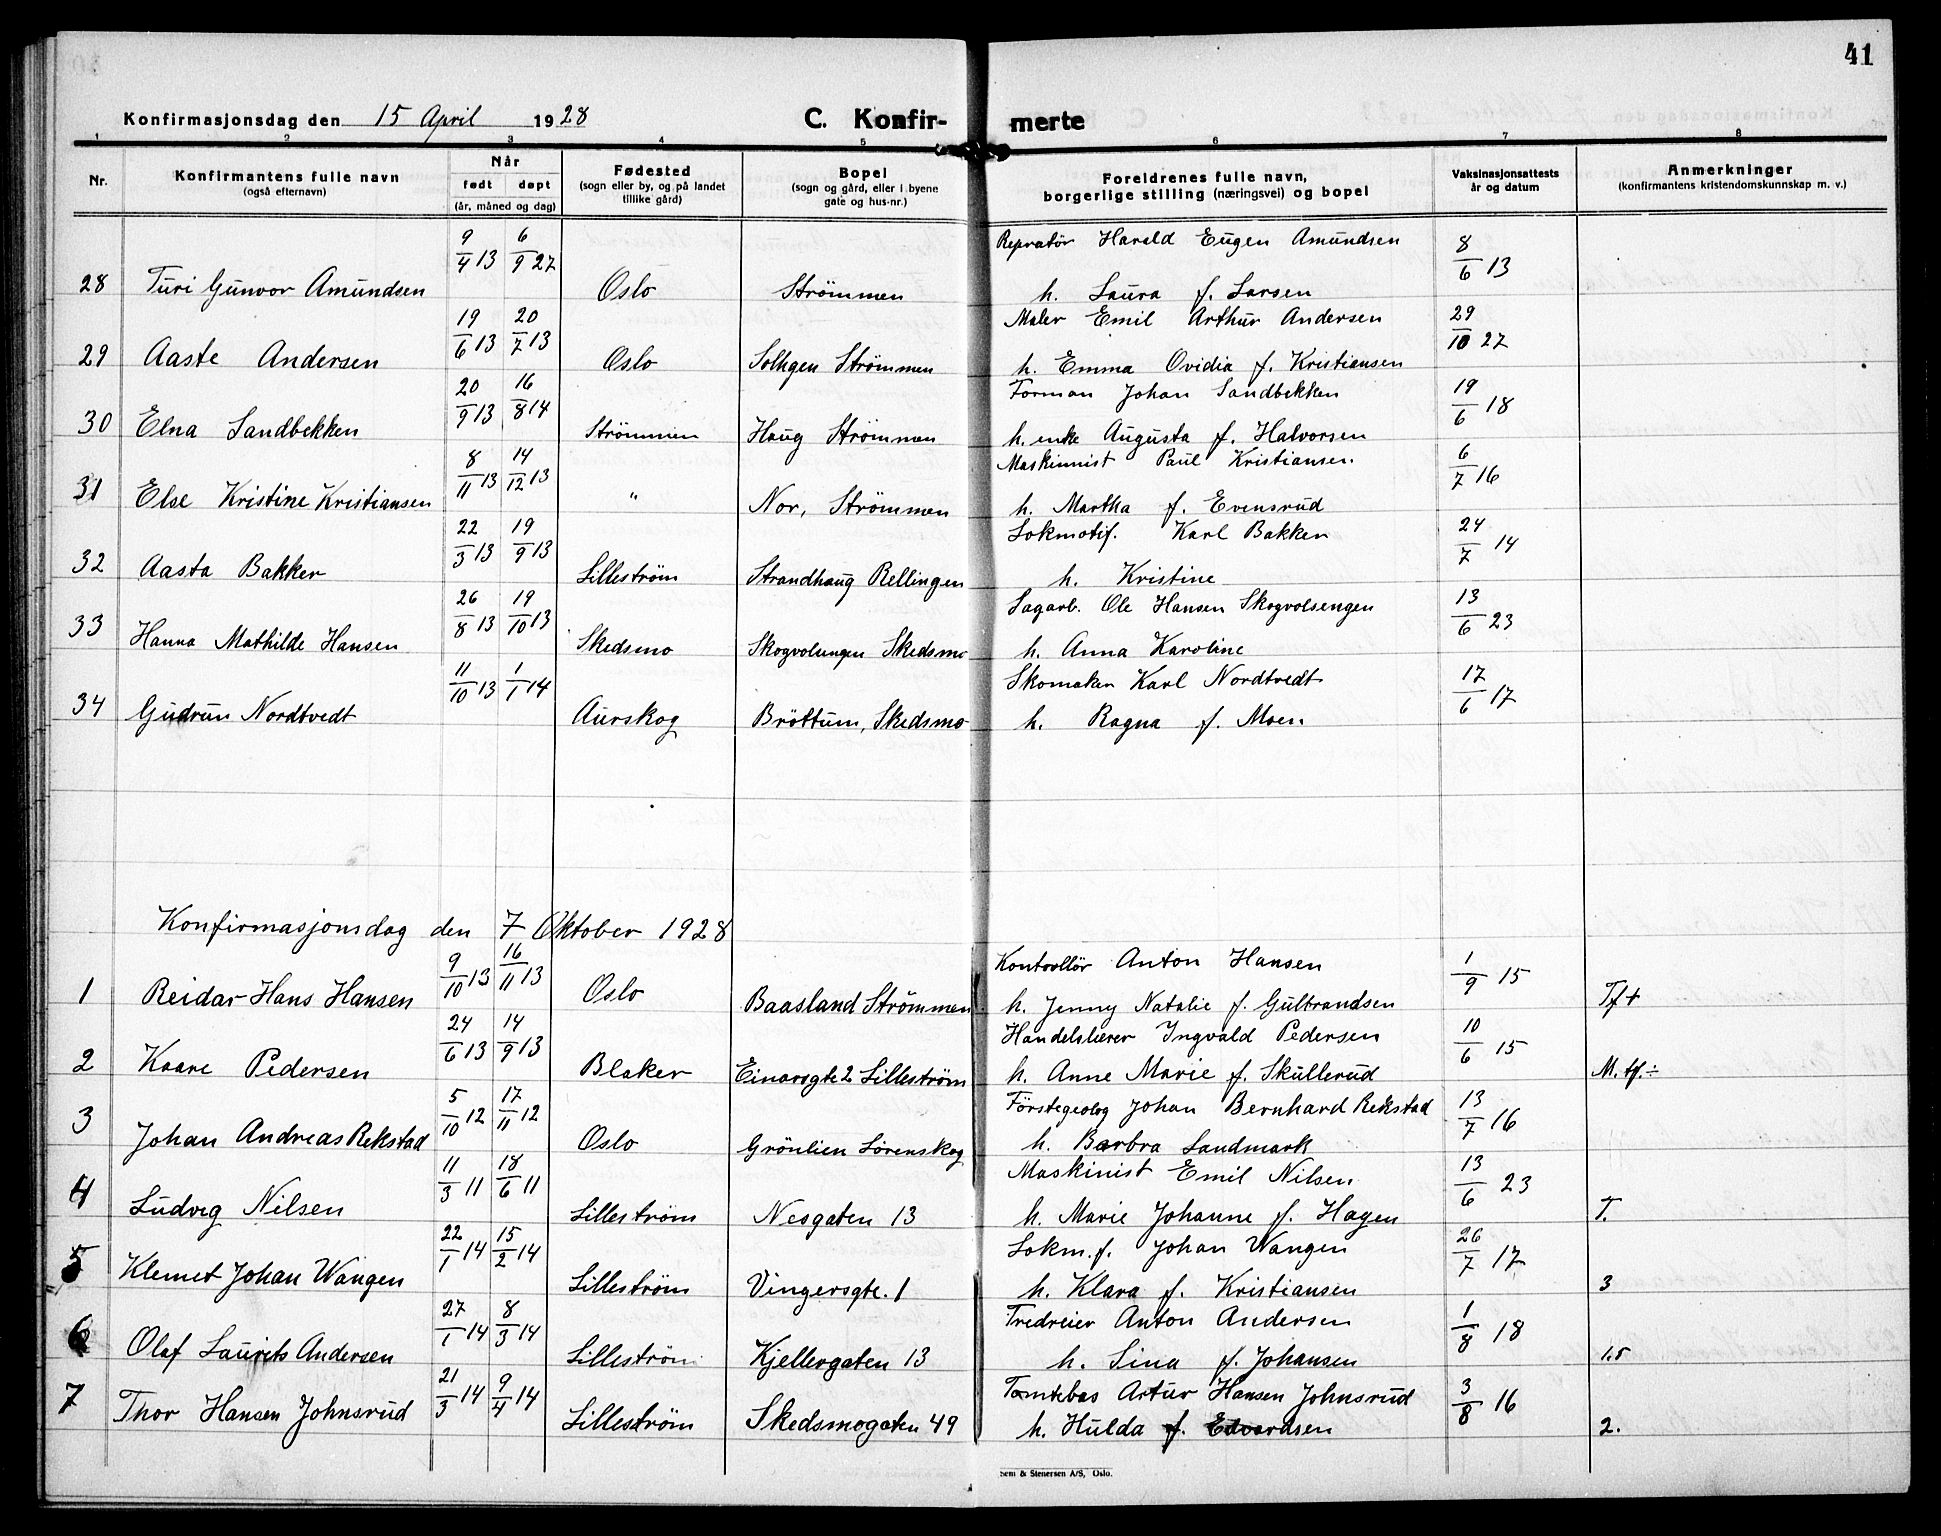 41
Konfirmasjonsdag den 15 April 1928
C. Konfir- merte
1 2 3 4 5 6 7 8
Nr.
Konfirmantens fulle navn
(også efternavn)
Når
født døpt
(år, måned og dag)
Fødested
(sogn eller by, og på landet
tillike gård)
Bopel
(sogn og gård, eller i byene
gate og hus-nr.)
Foreldrenes fulle navn,
borgerlige stilling (næringsvei) og bopel
Vaksinasjonsattests
år og datum
Anmerkninger
(konfirmantens kristendomskunnskap m. v.)
9/4 13 6/9 27 Repratør Harald Eugen Amundsen 8/6 13
28 Turi Gunvor Amundsen Oslo Strømmen h. Laura f. Larsen
19/6 13 20/7 13 Maler Emil Arthur Andersen 29/10 27
29 Aaste Andersen Oslo Solhgen Strømmen h. Emma Ovidia f. Kristiansen
20/9 13 16/8 14 Forman Johan Sandbekken 19/6 18
30 Elna Sandbekken Strömmen Haug Strømmen h. enke Augusta f. Halvorsen
8/11 13 14/12 13 Maskinnist Paul Kristiansen. 6/7 16
31 Else Kristine Kristiansen " Nor, Strømmen h. Martha f. Evensrud
22/3 13 19/9 13 Lokmotif. Karl Bakken 24/7 14
32 Aasta Bakken Lilleström Strandhaug Rellingen h. Kristine
26/8 13 19/10 13 Sagarb. Ole Hansen Skogvolsengen 13/6 23
33 Hanna Mathilde Hansen Skedsmo Skogvolungen Skedsmo h. Anna Karoline
11/10 13 1/1 14 Skomaker Karl Nordtvedt 17/6 17
34 Gudrun Nordtvedt Aurskog Bröttum, Skedsmo h. Ragna f. Moen
Konfirmasjonsdag den 7 Oktober 1928
9/10 13 16/11 13 Kontrollör Anton Hansen 1/9 15
1 Reidar Hans Hansen Oslo Baasland Strömmen h. Jenny Natalie f. Gulbrandsen Tf +
24/6 13 14/9 13 Handelslærer Ingvald Pedersen 10/6 15
2 Kaare Pedersen Blaker Einarsgte 2 Lilleström h. Anne Marie f. Skullerud M. tf. ÷
5/10 12 17/11 12 Förstegeolog Johan Bernhard Rekstad 13/7 16
3 Johan Andreas Rekstad Oslo Grönlien Lörenskog h. Barbra Landmark
11/3 11 18/6 11 Maskinist Emil Nilsen 13/6 23
4 Ludvig Nilsen Lilleström Nesgaten 13 h. Marie Johanne f. Hagen T.
22/1 14 15/2 14 Lokm.f. Johan Wangen 26/7 17
5 Klemet Johan Wangen Lilleström Vingersgte. 1 h. Klara f. Kristiansen 3
27/1 14 8/3 14 Tredreier Anton Andersen 1/8 18
6 Olaf Laurits Andersen Lilleström Kjellergaten 13 h. Lina f. Johansen 1.5
21/3 14 9/4 14 Tomtebas Artur Hansen Johnsrud 3/8 16
7 Thor Hansen Johnsrud Lilleström Skedsmogaten 49 h. Hulda f. Edvardsen 2.
Sem & Stenersen A/S, Oslo.